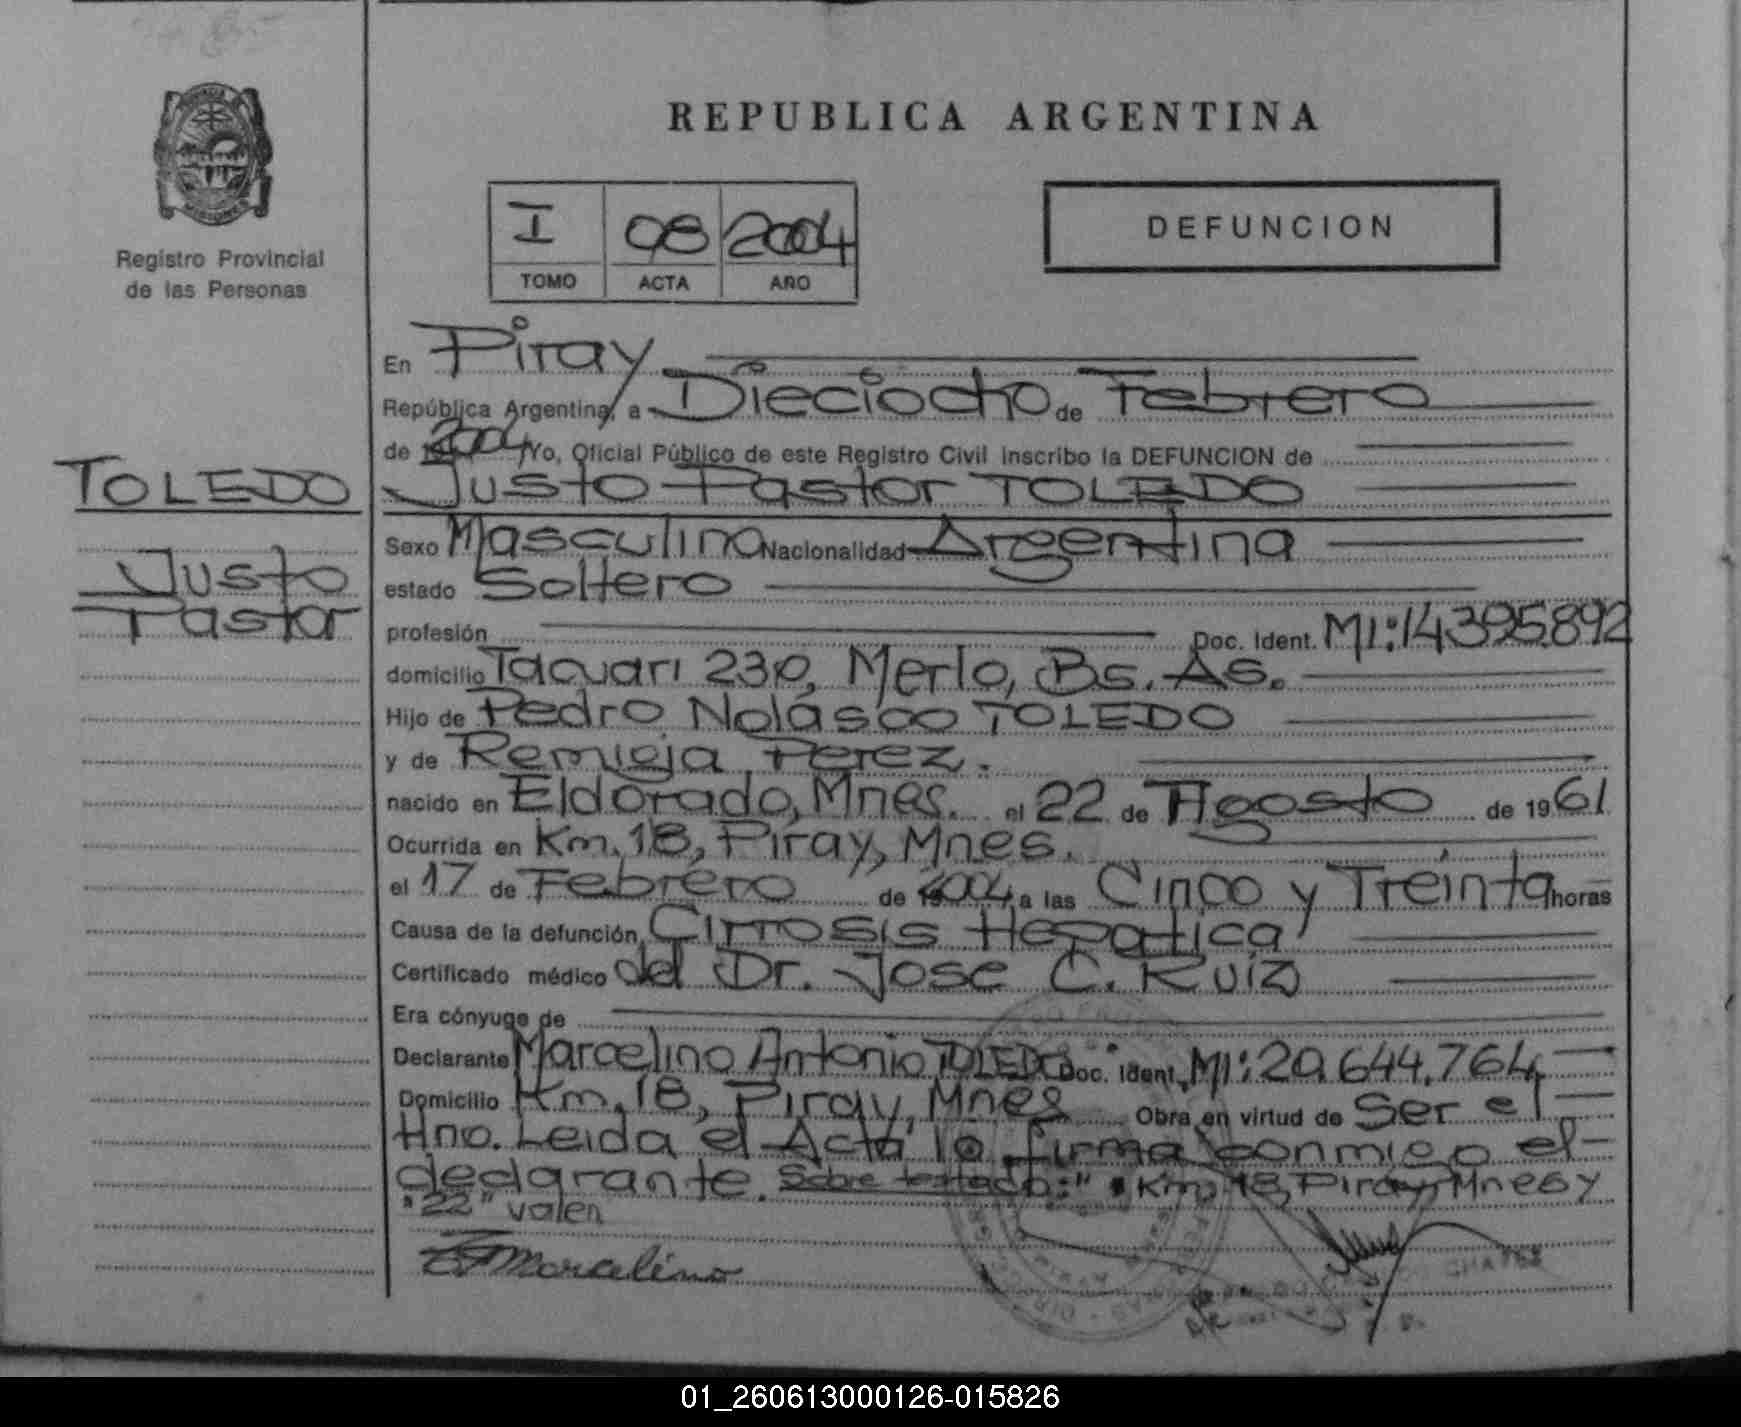 REPUBLICA ARGENTINA
I 08 2004
TOMO ACTA AÑO
DEFUNCION
Registro Provincial
de las Personas
TOLEDO
Justo
Pastor
En Piray
República Argentina, a Dieciocho de Febrero
de 2004 Yo, Oficial Público de este Registro Civil inscribo la DEFUNCION de
Justo Pastor TOLEDO
Sexo Masculino Nacionalidad Argentina
estado Soltero
profesión Doc. Ident. MI:14395.892
domicilio Tacuari 230, Merlo, Bs. As.
Hijo de Pedro Nolasco TOLEDO
y de Remigia Perez.
nacido en Eldorado, Mnes. el 22 de Agosto de 1961
Ocurrida en Km. 18, Piray, Mnes.
el 17 de Febrero de 2004 a las Cinco y Treinta horas
Causa de la defunción Cirrosis Hepatica
Certificado médico del Dr. Jose C. Ruiz
Era cónyuge de
Declarante Marcelino Antonio TOLEDO Doc. Ident. MI: 20.644.764
Domicilio Km. 18, Piray, Mnes Obra en virtud de Ser el
Hno. Leida el Acta la firma conmigo el
declarante. Sobre testado: " Km. 18, Piray, Mnes y
"22" valen
Marcelino
CHAVES
01_260613000126-015826